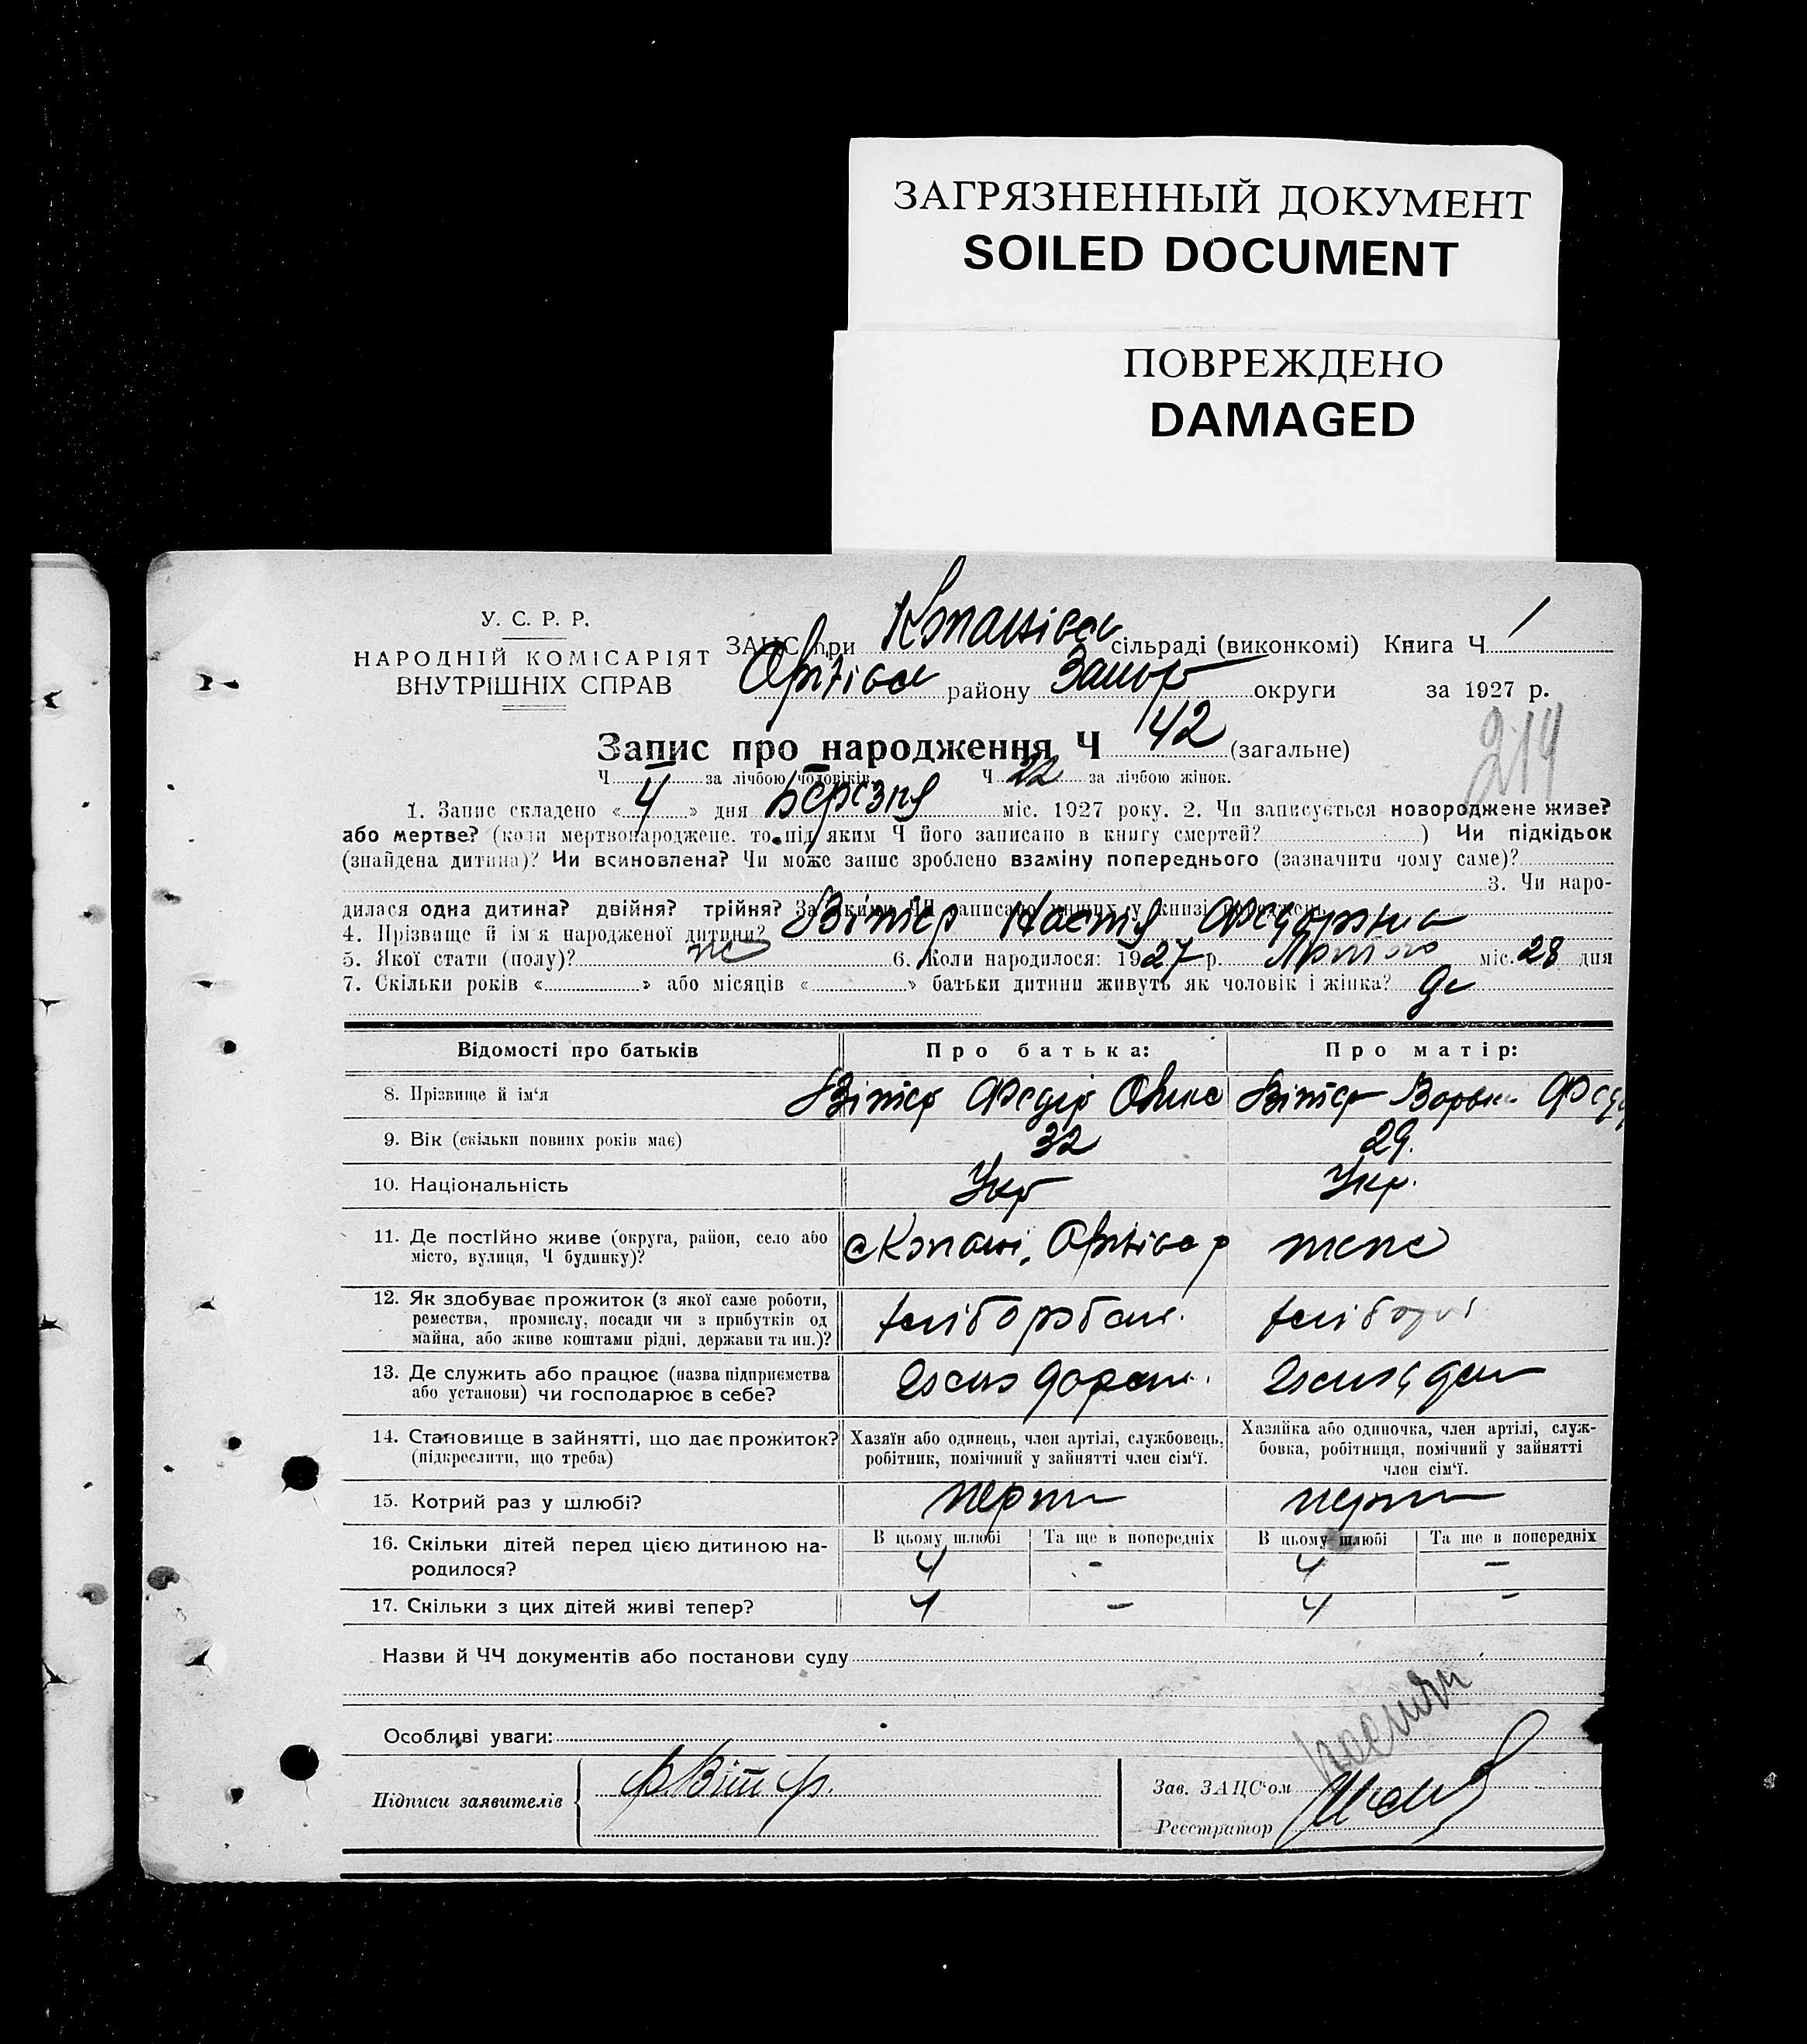 ЗАГРЯЗНЕННЫЙ ДОКУМЕНТ
SOILED DOCUMENT
ПОВРЕЖДЕНО
DAMAGED
У. С. Р. Р.
НАРОДНІЙ КОМІСАРІЯТ
ВНУТРІШНІХ СПРАВ
ЗАЦС при сільраді (виконкомі) Книга Ч 1
району Запор округи за 1927 р.
214
Запис про народження Ч 42 (загальне)
Ч — за лічбою чоловіків Ч 22 за лічбою жінок.
1. Запис складено «4» дня Березня міс. 1927 року. 2. Чи записується новороджене живе?
або мертве? (коли мертвонароджене, то під яким Ч його записано в книгу смертей? ) Чи підкідьок
(знайдена дитина)? Чи всиновлена? Чи може запис зроблено взаміну попереднього (зазначити чому саме)?
3. Чи наро-
дилася одна дитина? двійня? трійня? За якими ЧЧ записано інших у книзі
4. Прізвище й ім'я народженої дитини? Вітер Настя Федорівна
5. Якої стати (полу)? ж 6. Коли народилося: 1927 р. Лютого міс. 28 дня
7. Скільки років « » або місяців « » батьки дитини живуть як чоловік і жінка?
Відомості про батьків Про батька: Про матір:
8. Прізвище й ім'я Вітер Федір Вітер
9. Вік (скільки повних років має) 32 29.
10. Національність Укр Укр.
11. Де постійно живе (округа, район, село або
місто, вулиця, Ч будинку)?
12. Як здобуває прожиток (з якої саме роботи,
ремества, промислу, посади чи з прибутків од
майна, або живе коштами рідні, держави та ин.)?
13. Де служить або працює (назва підприємства
або установи) чи господарює в себе?
14. Становище в зайнятті, що дає прожиток?
(підкреслити, що треба)
Хазяїн або одинець, член артілі, службовець,
робітник, помічний у зайнятті член сім'ї.
Хазяйка або одиночка, член артілі, служ-
бовка, робітниця, помічний у зайнятті
член сім'ї.
15. Котрий раз у шлюбі?
16. Скільки дітей перед цією дитиною на-
родилося?
В цьому шлюбі Та ще в попередніх В цьому шлюбі Та ще в попередніх
4 - 4 -
17. Скільки з цих дітей живі тепер? 4 - 4 -
Назви й ЧЧ документів або постанови суду
Особливі уваги:
Підписи заявителів Ф. Вітер.
Зав. ЗАЦС'ом
Реєстратор